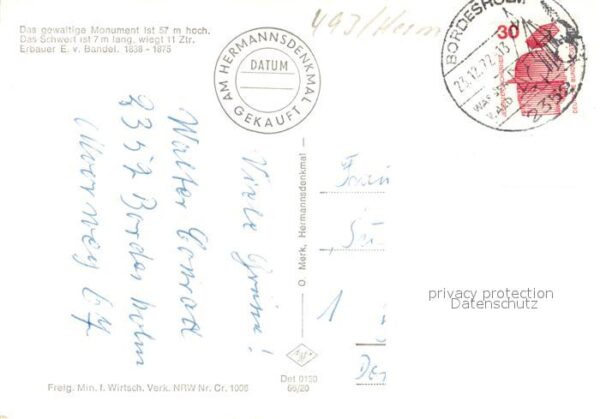 Das gewaltige Monument ist 57 m hoch.
Das Schwert ist 7 m lang, wiegt 11 Ztr.
Erbauer E. v. Bandel. 1838 - 1875
493/Herm
AM HERMANNSDENKMAL
DATUM
GEKAUFT
BORDESHOLM
23.12.72.13
2352
30
Viele Grüße!
Walter Conrad
2352 Bordesholm
64
O. Merk, Hermannsdenkmal
Frau
1
privacy protection
Datenschutz
Det 0150
66/20
Freig. Min. f. Wirtsch. Verk. NRW Nr. Cr. 1006